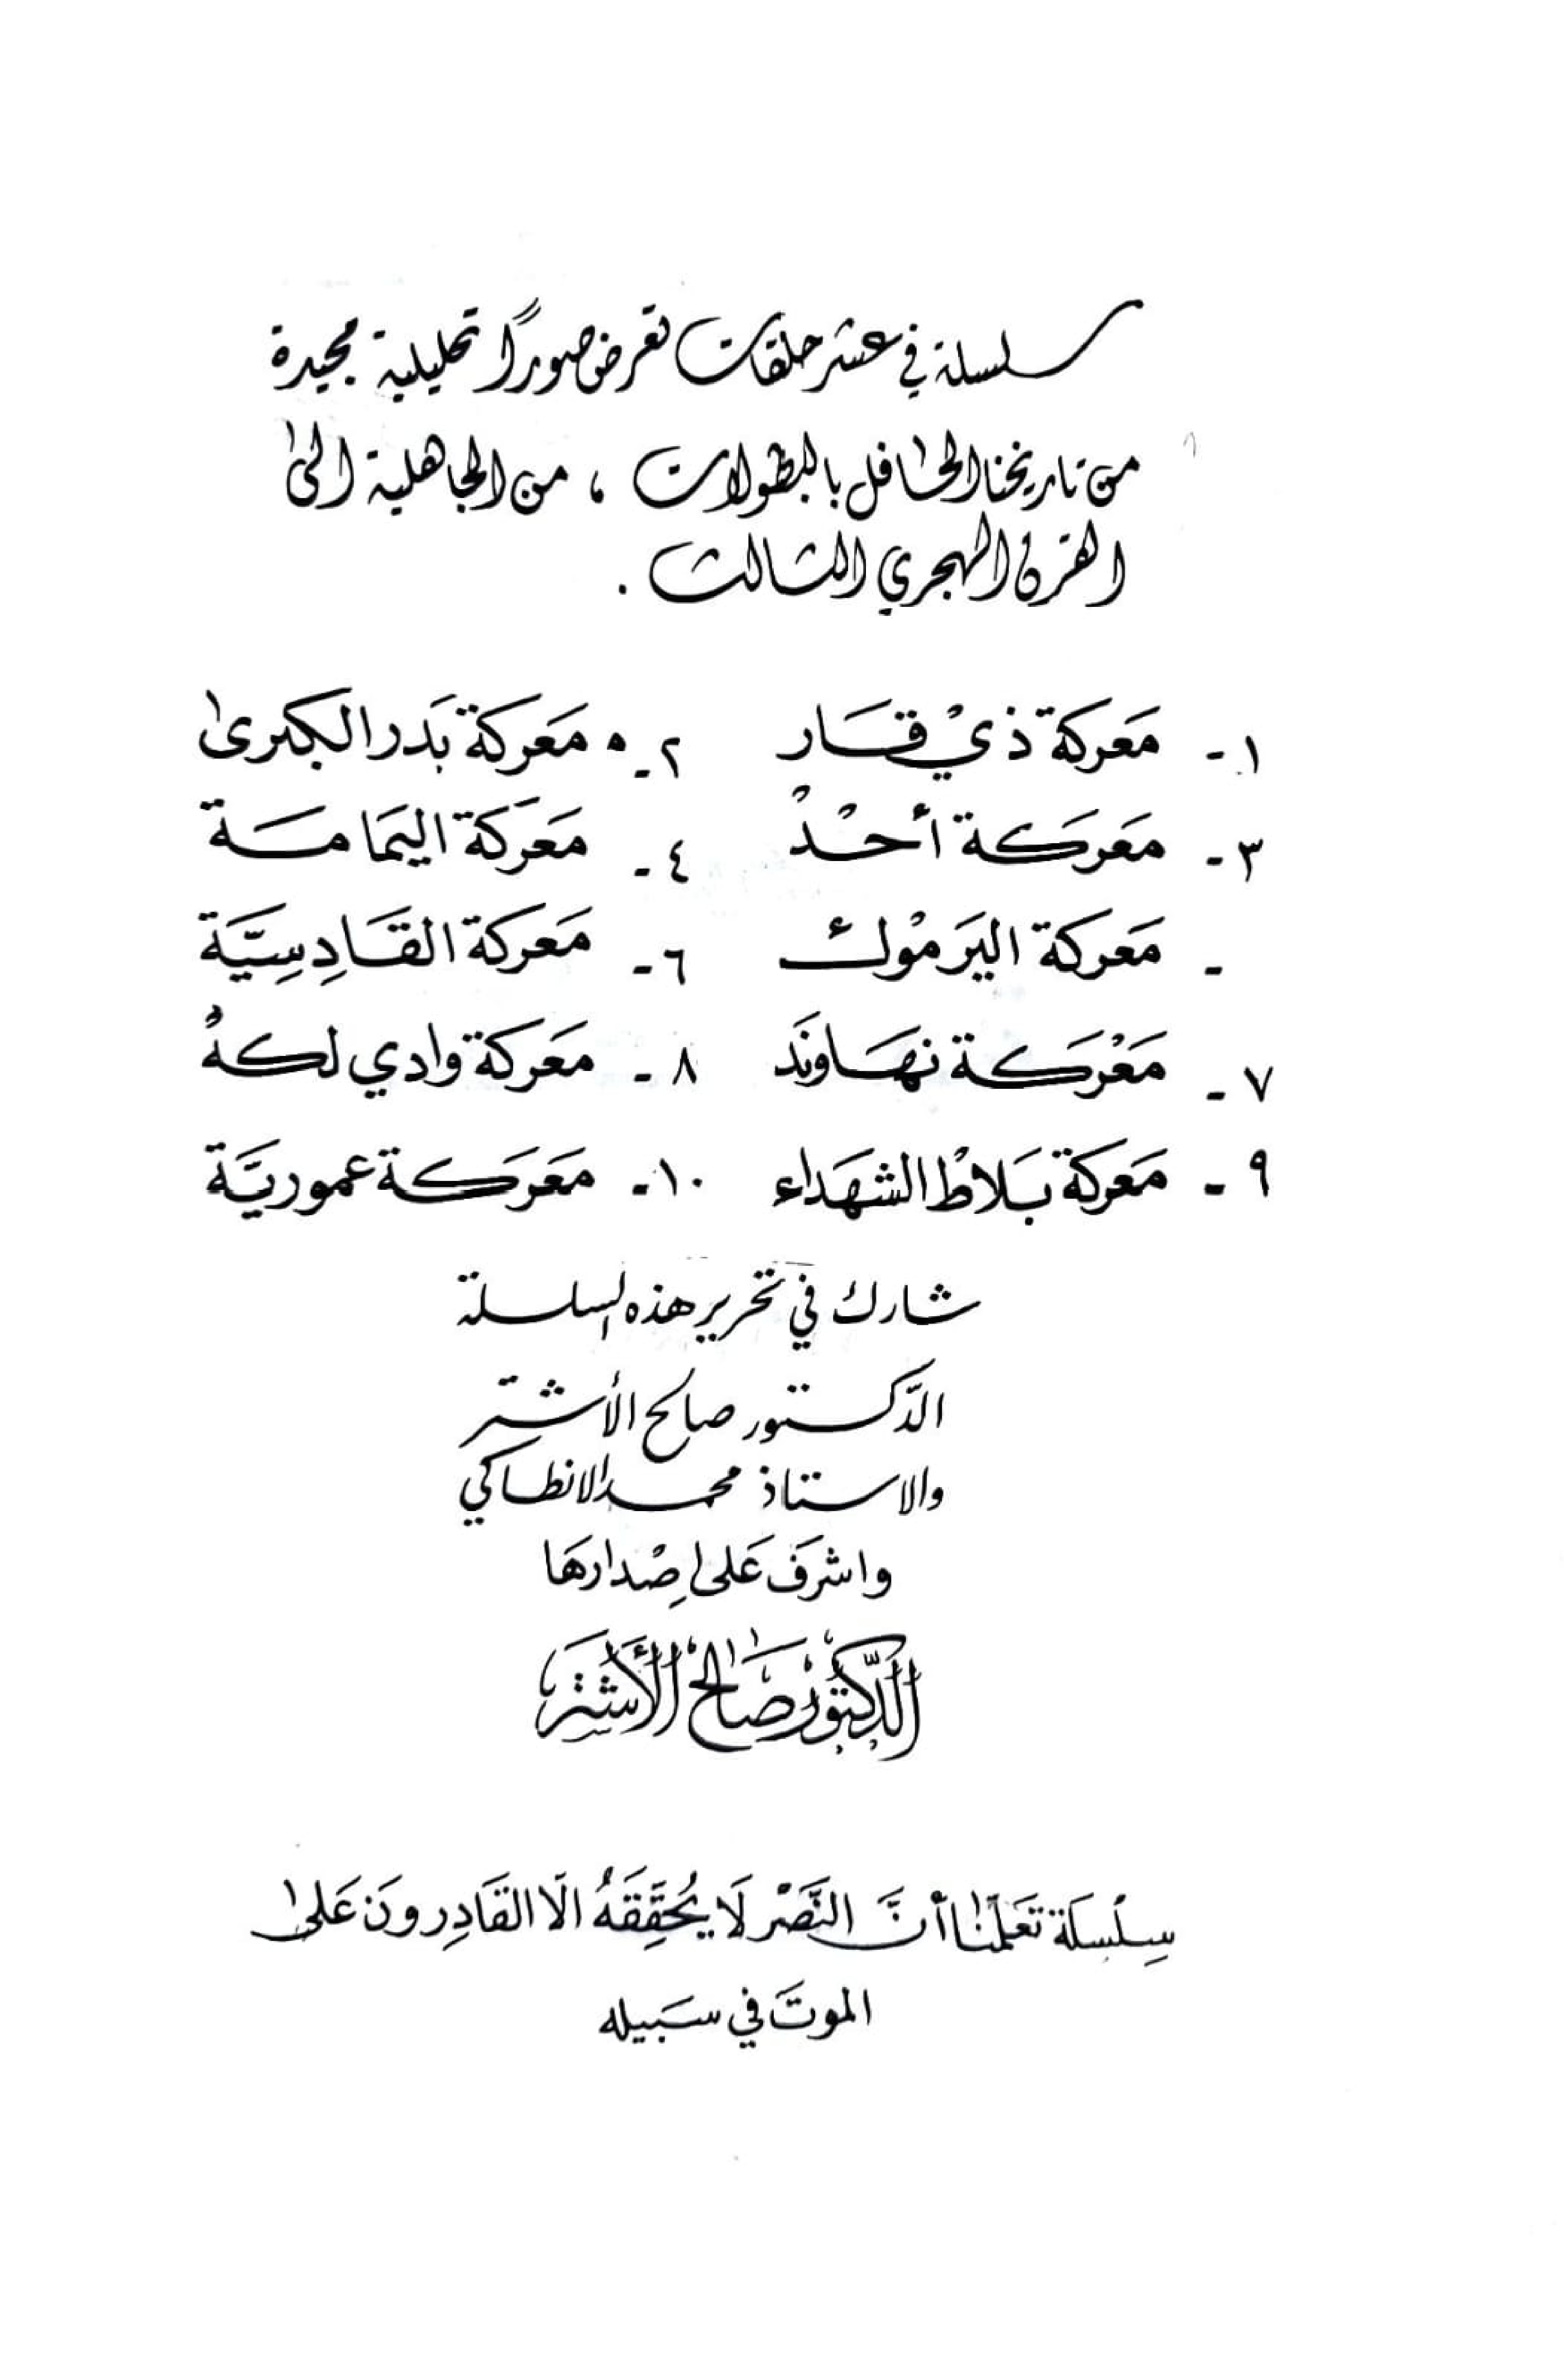 سلسلة في عشر حلقات تعرض صوراً تحليلية مجيدة
من تاريخنا الحافل بالبطولات ، من الجاهلية الى
القرن الهجري الثالث .
١ - مَعركة ذيْ قَار ٢ - مَعركة بَدر الكبرىٰ
٣ - مَعرَكة أحُدْ ٤ - مَعرَكة اليَمامَة
- مَعركة اليَرموْك ٦ - مَعركة القَادِسِيَّة
٧ - مَعْرَكة نهَاونَد ٨ - مَعَركة وادي لكهُ
٩ - مَعركة بَلاطْ الشهَداء ١٠ - مَعَرَكة عموريَّة
شارك في تحرير هذه السلسلة
الدّكتور صالح الأشتر
والاستاذ محمد الانطاكي
واشرفَ عَلى اِصْدارهَا
الدّكتور صَالح الأَشتَر
سِلْسِلَة تعَلّمنَا أنَّ النَّصْر لَا يُحَقِّقَهُ الّا القَادِرونَ عَلىٰ
الموتَ في سَبيله